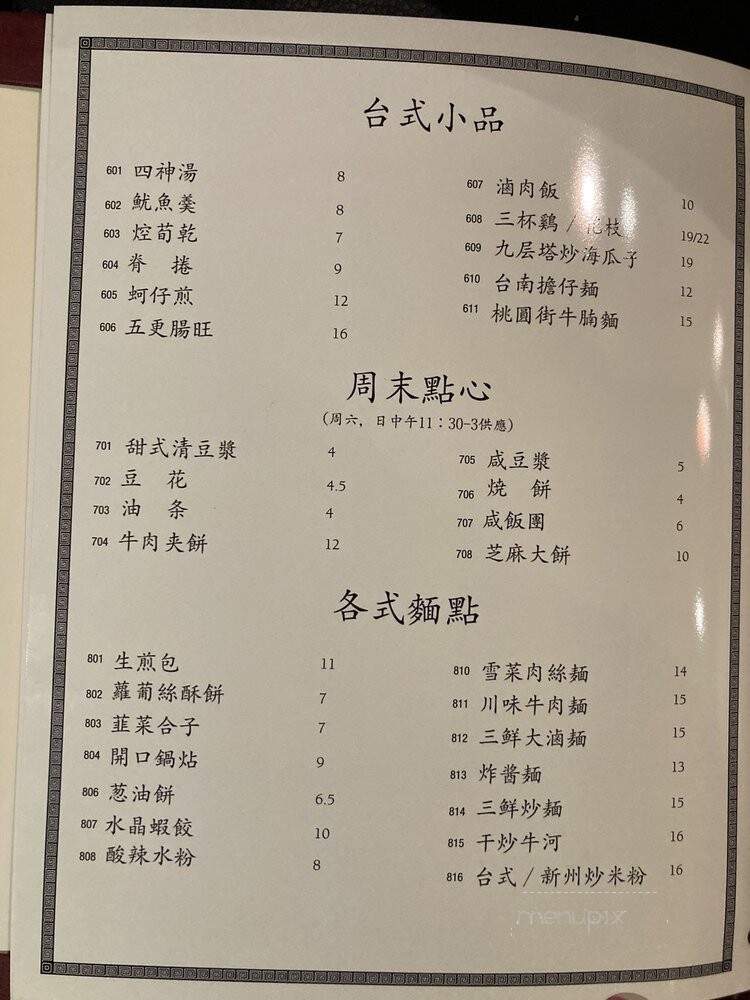 台式小品
601 四神湯 8
602 魷魚羹 8
603 焢荀乾 7
604 脊 捲 9
605 蚵仔煎 12
606 五更腸旺 16
607 滷肉飯 10
608 三杯鷄 / 花枝 19/22
609 九层塔炒海瓜子 19
610 台南擔仔麵 12
611 桃園街牛腩麵 15
周末點心
(周六, 日中午11：30-3供應)
701 甜式清豆漿 4
702 豆 花 4.5
703 油 条 4
704 牛肉夹餅 12
705 咸豆漿 5
706 燒 餅 4
707 咸飯團 6
708 芝麻大餅 10
各式麵點
801 生煎包 11
802 蘿葡絲酥餅 7
803 韮菜合子 7
804 開口鍋炶 9
806 葱油餅 6.5
807 水晶蝦餃 10
808 酸辣水粉 8
810 雪菜肉絲麵 14
811 川味牛肉麵 15
812 三鮮大滷麵 15
813 炸醬麵 13
814 三鮮炒麵 15
815 干炒牛河 16
816 台式 / 新州炒米粉 16
menupix